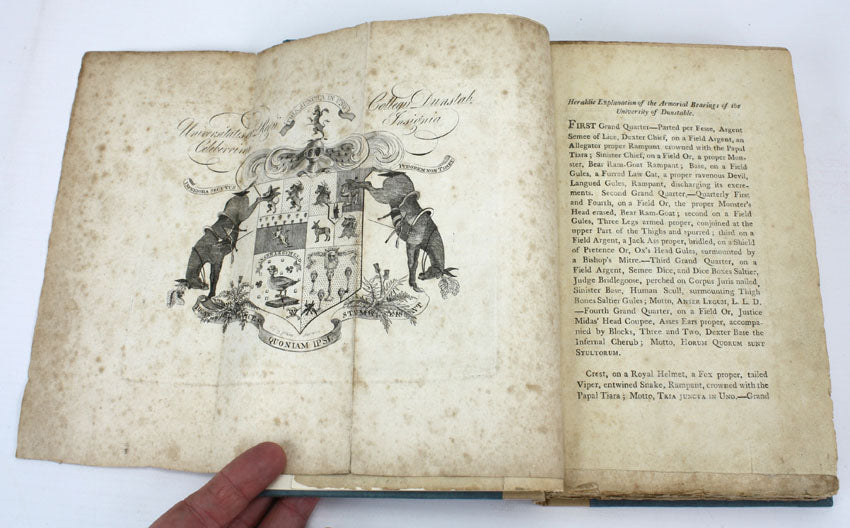 Universitatis
Celeberrim
College Dunstab.
Insignia
QUONIAM IPSI
Heraldic Explanation of the Armorial Bearings of the
University of Dunstable.
FIRST Grand Quarter—Parted per Fesse, Argent
Semee of Lice, Dexter Chief, on a Field Argent, an
Allegator proper Rampant, crowned with the Papal
Tiara; Sinister Chief, on a Field Or, a proper Mon-
ster, Bear Ram-Goat Rampant; Base, on a Field
Gules, a Furred Law Cat, a proper ravenous Devil,
Langued Gules, Rampant, discharging its excre-
ments. Second Grand Quarter.—Quarterly First
and Fourth, on a Field Or, the proper Monster's
Head erased, Bear Ram-Goat; second on a Field
Gules, Three Legs armed proper, conjoined at the
upper Part of the Thighs and spurred; third on a
Field Argent, a Jack Ass proper, bridled, on a Shield
of Pretence Or, Ox's Head Gules, surmounted by
a Bishop's Mitre.—Third Grand Quarter, on a
Field Argent, Semee Dice, and Dice Boxes Saltier,
Judge Bridlegoose, perched on Corpus Juris nailed,
Sinister Base, Human Scull, surmounting Thigh
Bones Saltier Gules; Motto, ANSER LEGEM, L. L. D.
—Fourth Grand Quarter, on a Field Or, Justice
Midas' Head Coupee, Asses Ears proper, accompa-
nied by Blocks, Three and Two, Dexter Base the
Infernal Cherub; Motto, HORUM QUORUM SUNT
STULTORUM.
Crest, on a Royal Helmet, a Fox proper, tailed
Viper, entwined Snake, Rampant, crowned with the
Papal Tiara; Motto, TRIA JUNCTA IN UNO.—Grand